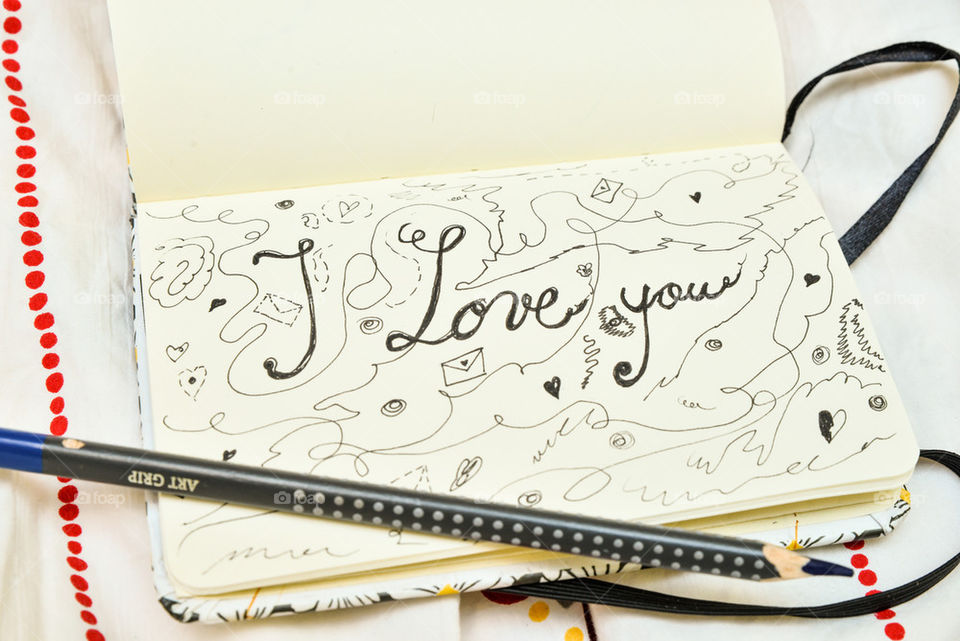 I Love you
ART GRIP